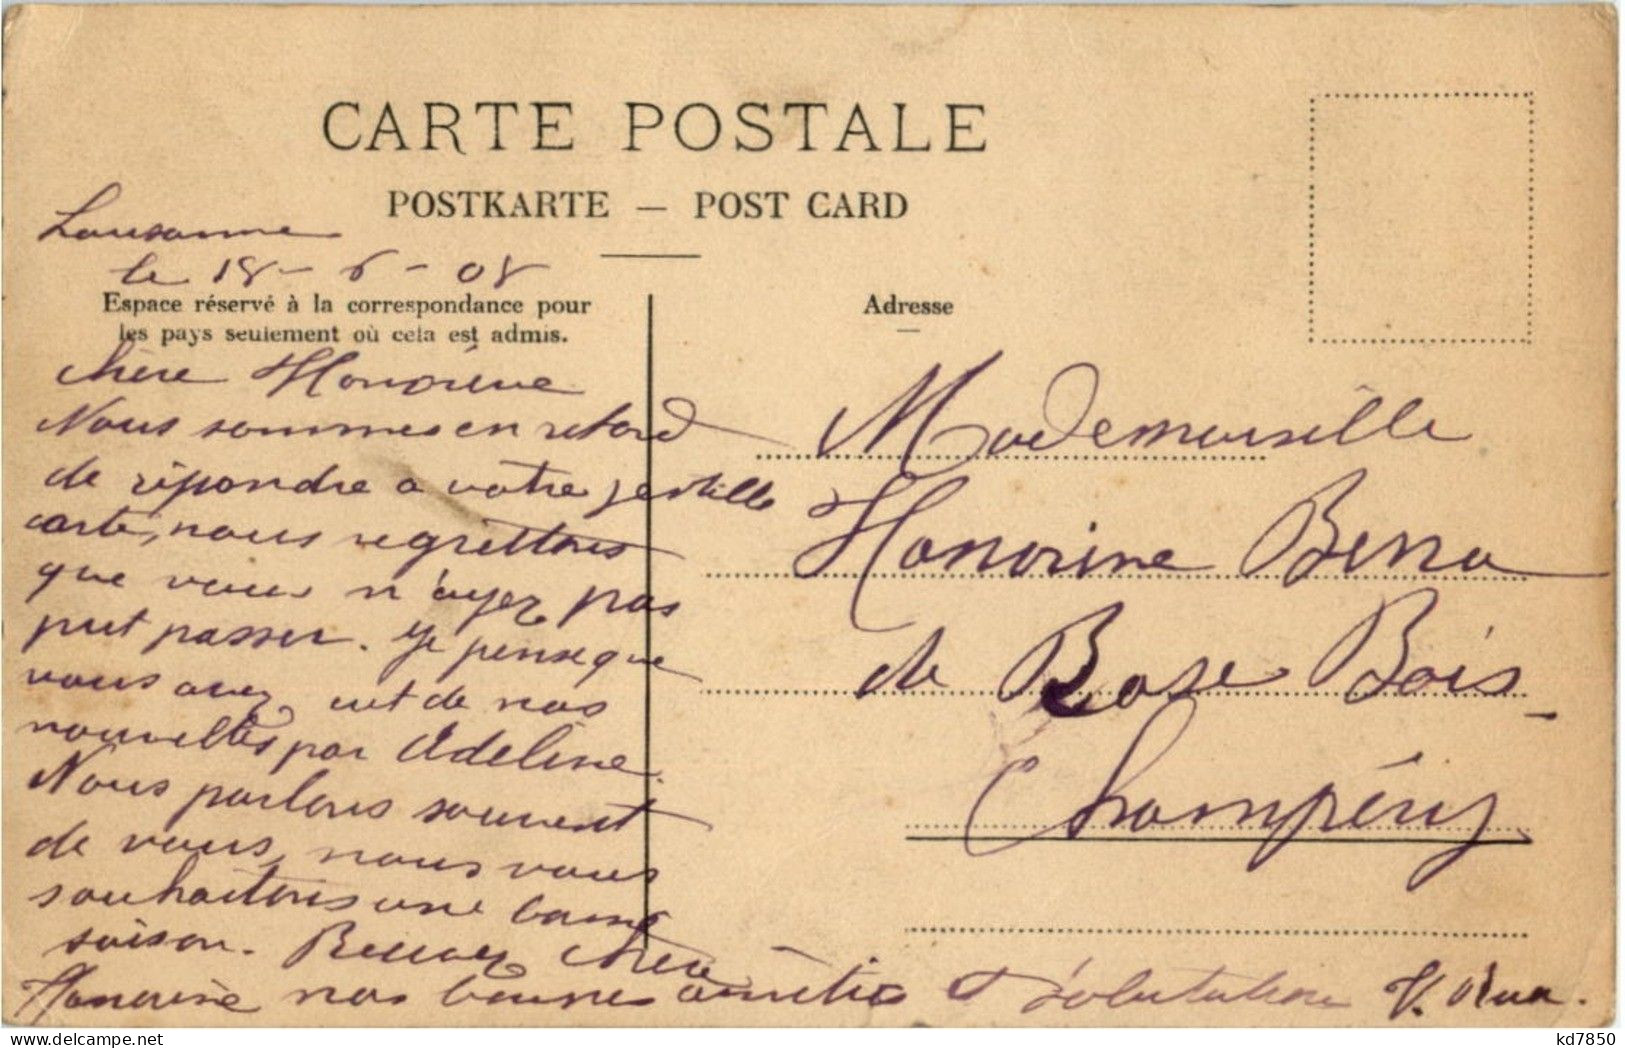 CARTE POSTALE
POSTKARTE — POST CARD
Lausanne
le 18 - 6 - 08
Espace réservé à la correspondance pour
les pays seulement où cela est admis.
chère Honorine
Nous sommes en retard
de répondre a votre gentille
carte, nous regrettons
que vous n'ayez pas
put passer. Je pense que
vous avez eut de nos
nouvelles par Adeline.
Nous parlons souvent
de vous, nous vous
souhaitons une bonne
saison. Recevez chère
Honorine nos bonnes amitiés
Adresse
Mademoiselle
Honorine
de Bose Bois
Champéry
kd7850